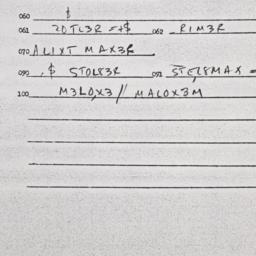 060 $
061 20TL3R =+$ 062 RIM3R
070 ALIXT MAX3R
090 .$ STOL83R 091 STEL8MAX =
100 M3LO,X3 // MALOX3M